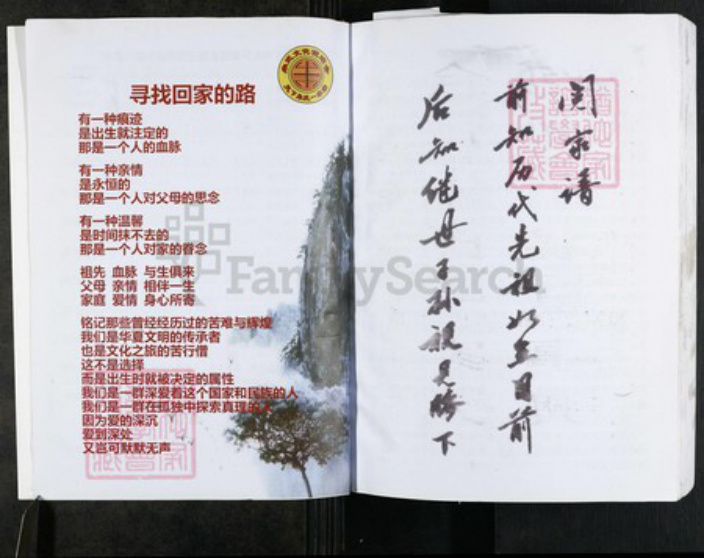 寻找回家的路
有一种痕迹
是出生就注定的
那是一个人的血脉
有一种亲情
是永恒的
那是一个人对父母的思念
有一种温馨
是时间抹不去的
那是一个人对家的眷念
祖先 血脉 与生俱来
父母 亲情 相伴一生
家庭 爱情 身心所寄
铭记那些曾经经历过的苦难与辉煌
我们是华夏文明的传承者
也是文化之旅的苦行僧
这不是选择
而是出生时就被决定的属性
我们是一群深爱着这个国家和民族的人
我们是一群在孤独中探索真理的人
因为爱的深沉
爱到深处
又岂可默默无声
FamilySearch
阅家谱
前知历代先祖如在目前
后知继母子孙视见膝下